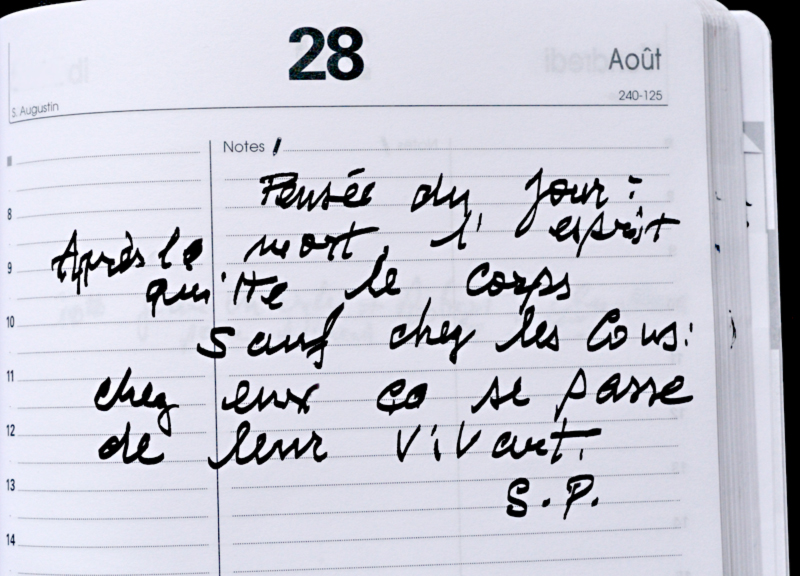 28
Août
S. Augustin
240-125
Notes
Pensée du jour :
8
Après la mort, l'esprit
9
quitte le corps
10
sauf chez les cons :
11
chez eux ça se passe
12
de leur vivant.
13
S.P.
14